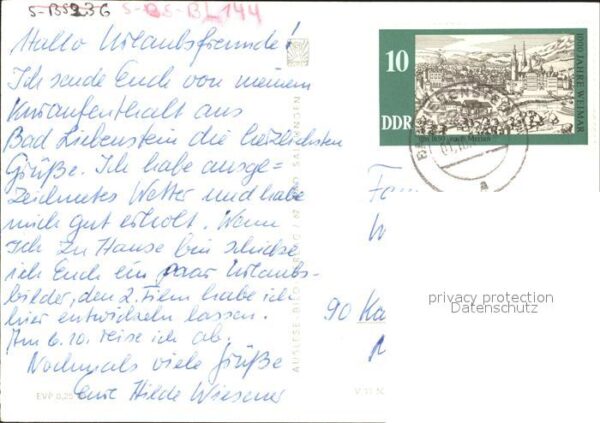 S-BS236
S-BS-BL144
Hallo Urlaubsfreunde!
Ich sende Euch von meinem
Kuraufenthalt aus
Bad Liebenstein die herzlichsten
Grüße. Ich habe ausge-
zeichnetes Wetter und habe
mich gut erholt. Wenn
ich zu Hause bin schicke
ich Euch ein paar Urlaubs-
bilder, den 2. Film habe ich
hier entwickeln lassen.
Am 6.10. reise ich ab.
Nochmals viele Grüße
Eure Hilde Wiesner
EVP 0,25
AUSLESE-BILD-VERLAG / BAD SALZUNGEN
V 11 50
10
1000 JAHRE WEIMAR
DDR
Um 1650 nach Merian
a
Fam
W
90 Ka
privacy protection
Datenschutz